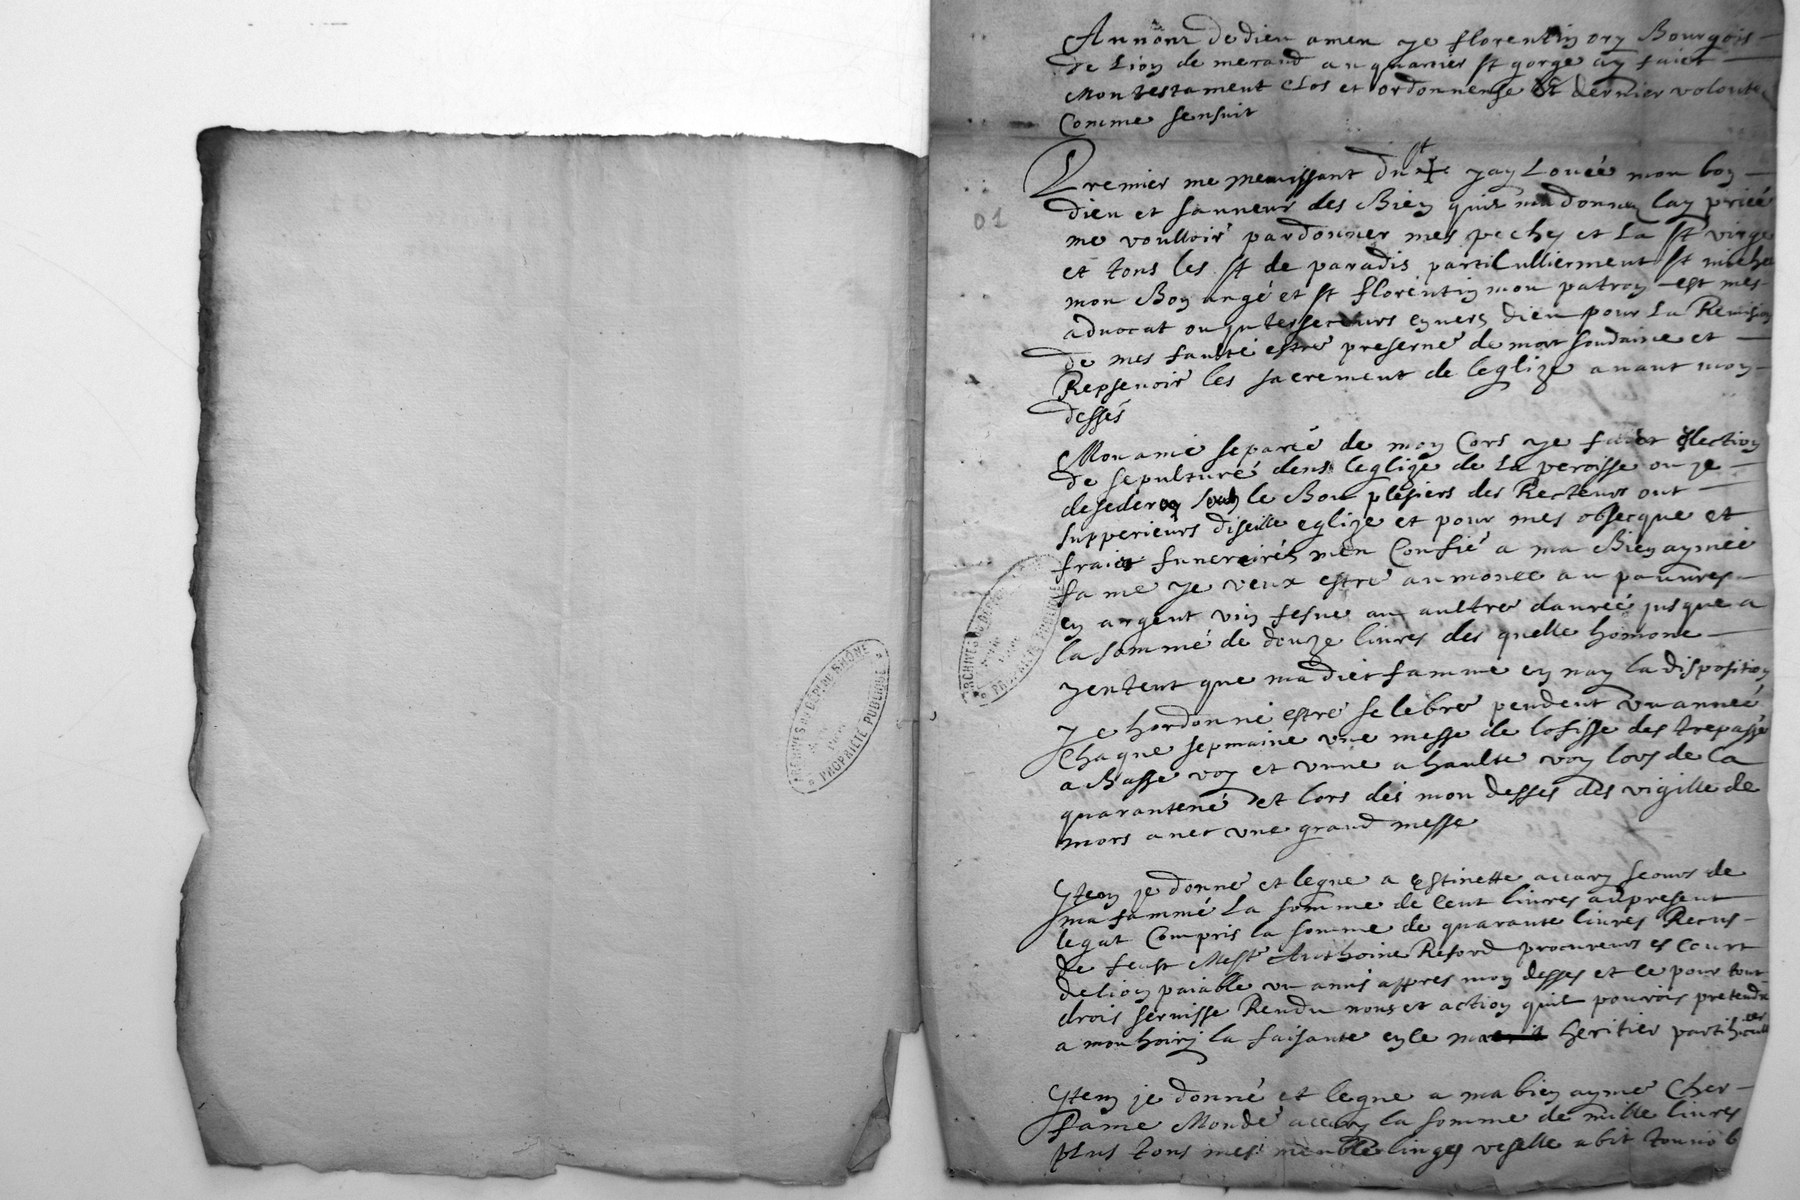 Au nom de dieu amen je florentin ory Bourgois
de Lion de merand au quartier st gorge ay faict
Mon testament clos et ordonnense et dernier volonte
Comme sensuit
Premier me du st yay Louéé mon bon
dieu et sauneur des Bien quil ma donne lay priéé
me voulloir pardonner mes peches et La st virge
et tous les st de paradis particullierment st miche
mon Bon angé et st florentin mon patron est mes
aduocat ou ynterseceurs enuers dieu pour La Remision
de mes faulté estre preserué de mort soudaine et
Repseuoir les sacrement de leglize auant mon
dessés
Mon ame separéé de mon Cors ye faict election
de sepulturé dens leglize de La peroisse ou je
desederoy soub le Bon plesiers des Recteurs out
supperieurs diseille eglize et pour mes obsecque et
frait funerairés men Confié a ma Bien aymée
fame ye veux estre aumonée au pauures
en argent vin fesne au aultre danréé jusque a
la sommé de douze liures des quelle homone
yentent que ma dict famme en nay la disposition
Je hordonné estre selebré pendent vn année
Chaque sepmaine vne messe de lofisse des trepassé
a Basse voy et vnne a haulte voy lors de La
quarantené et lors dei mon desses des vigille de
mors auec vne grand messe
Ytem je donne et legue a estinette accary seours de
ma famme La somme de Cent liures au present
legat Compris la somme de quarante liures Recus
de feust Mest Anthoine Reford procureurs es Court
de lion paiable vn annś appres mon desses et ce pour tout
drois seruisse Rendu nous et action quil pourois pretendre
a mon hoiry la faisante en ce heritier particuller
Ytem je donné et legue a ma bien aymé Cher
fame Mondé accary la somme de mille liures
plus tous mes menble linges veselle abit
01
ARCHIVES DU DEPT DU RHÔNE
PROPRIETÉ PUBLIQUE
ARCHIVES DU DEPT DU RHÔNE
PROPRIETÉ PUBLIQUE